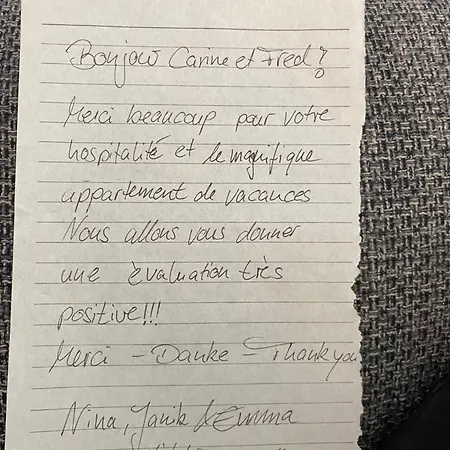 Bonjour Carine et Fred!
Merci beaucoup pour votre
hospitalité et le magnifique
appartement de vacances
Nous allons vous donner
une évaluation très
positive!!!
Merci - Danke - Thank you
Nina, Janik & Emma